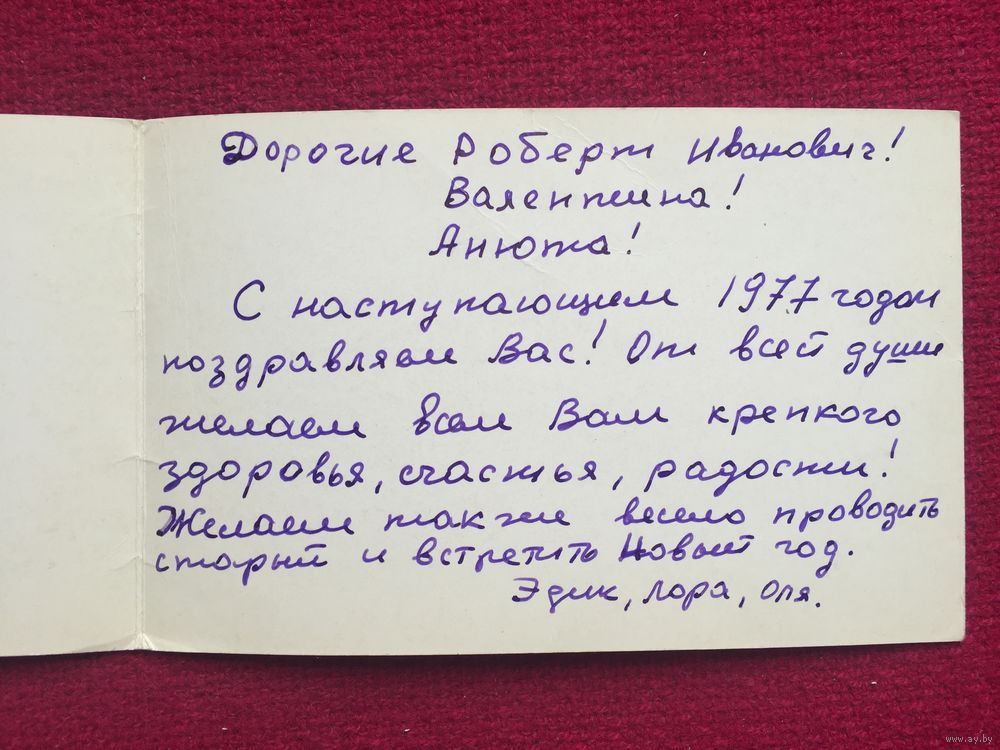 Дорогие Роберт Иванович!
Валентина!
Анюта!
С наступающим 1977 годом
поздравляем Вас! От всей души
желаем всем Вам крепкого
здоровья, счастья, радости!
Желаем также весело проводить
старый и встретить Новый год.
Эдик, Лора, Оля.
www.ay.by